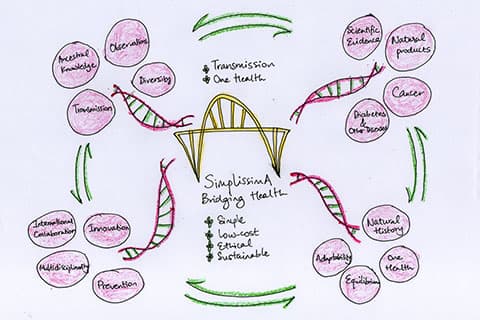 Ancestral
Knowledge
Observations
Diversity
Transmission
Transmission
One Health
Scientific
Evidence
Natural
products
Cancer
Diabetes
&
Other Diseases
SimplissimA
Bridging Health
Simple
Low-cost
Ethical
Sustainable
International
Collaboration
Innovation
Multidisciplinarity
Prevention
Natural
History
Adaptability
One
Health
Equilibrium